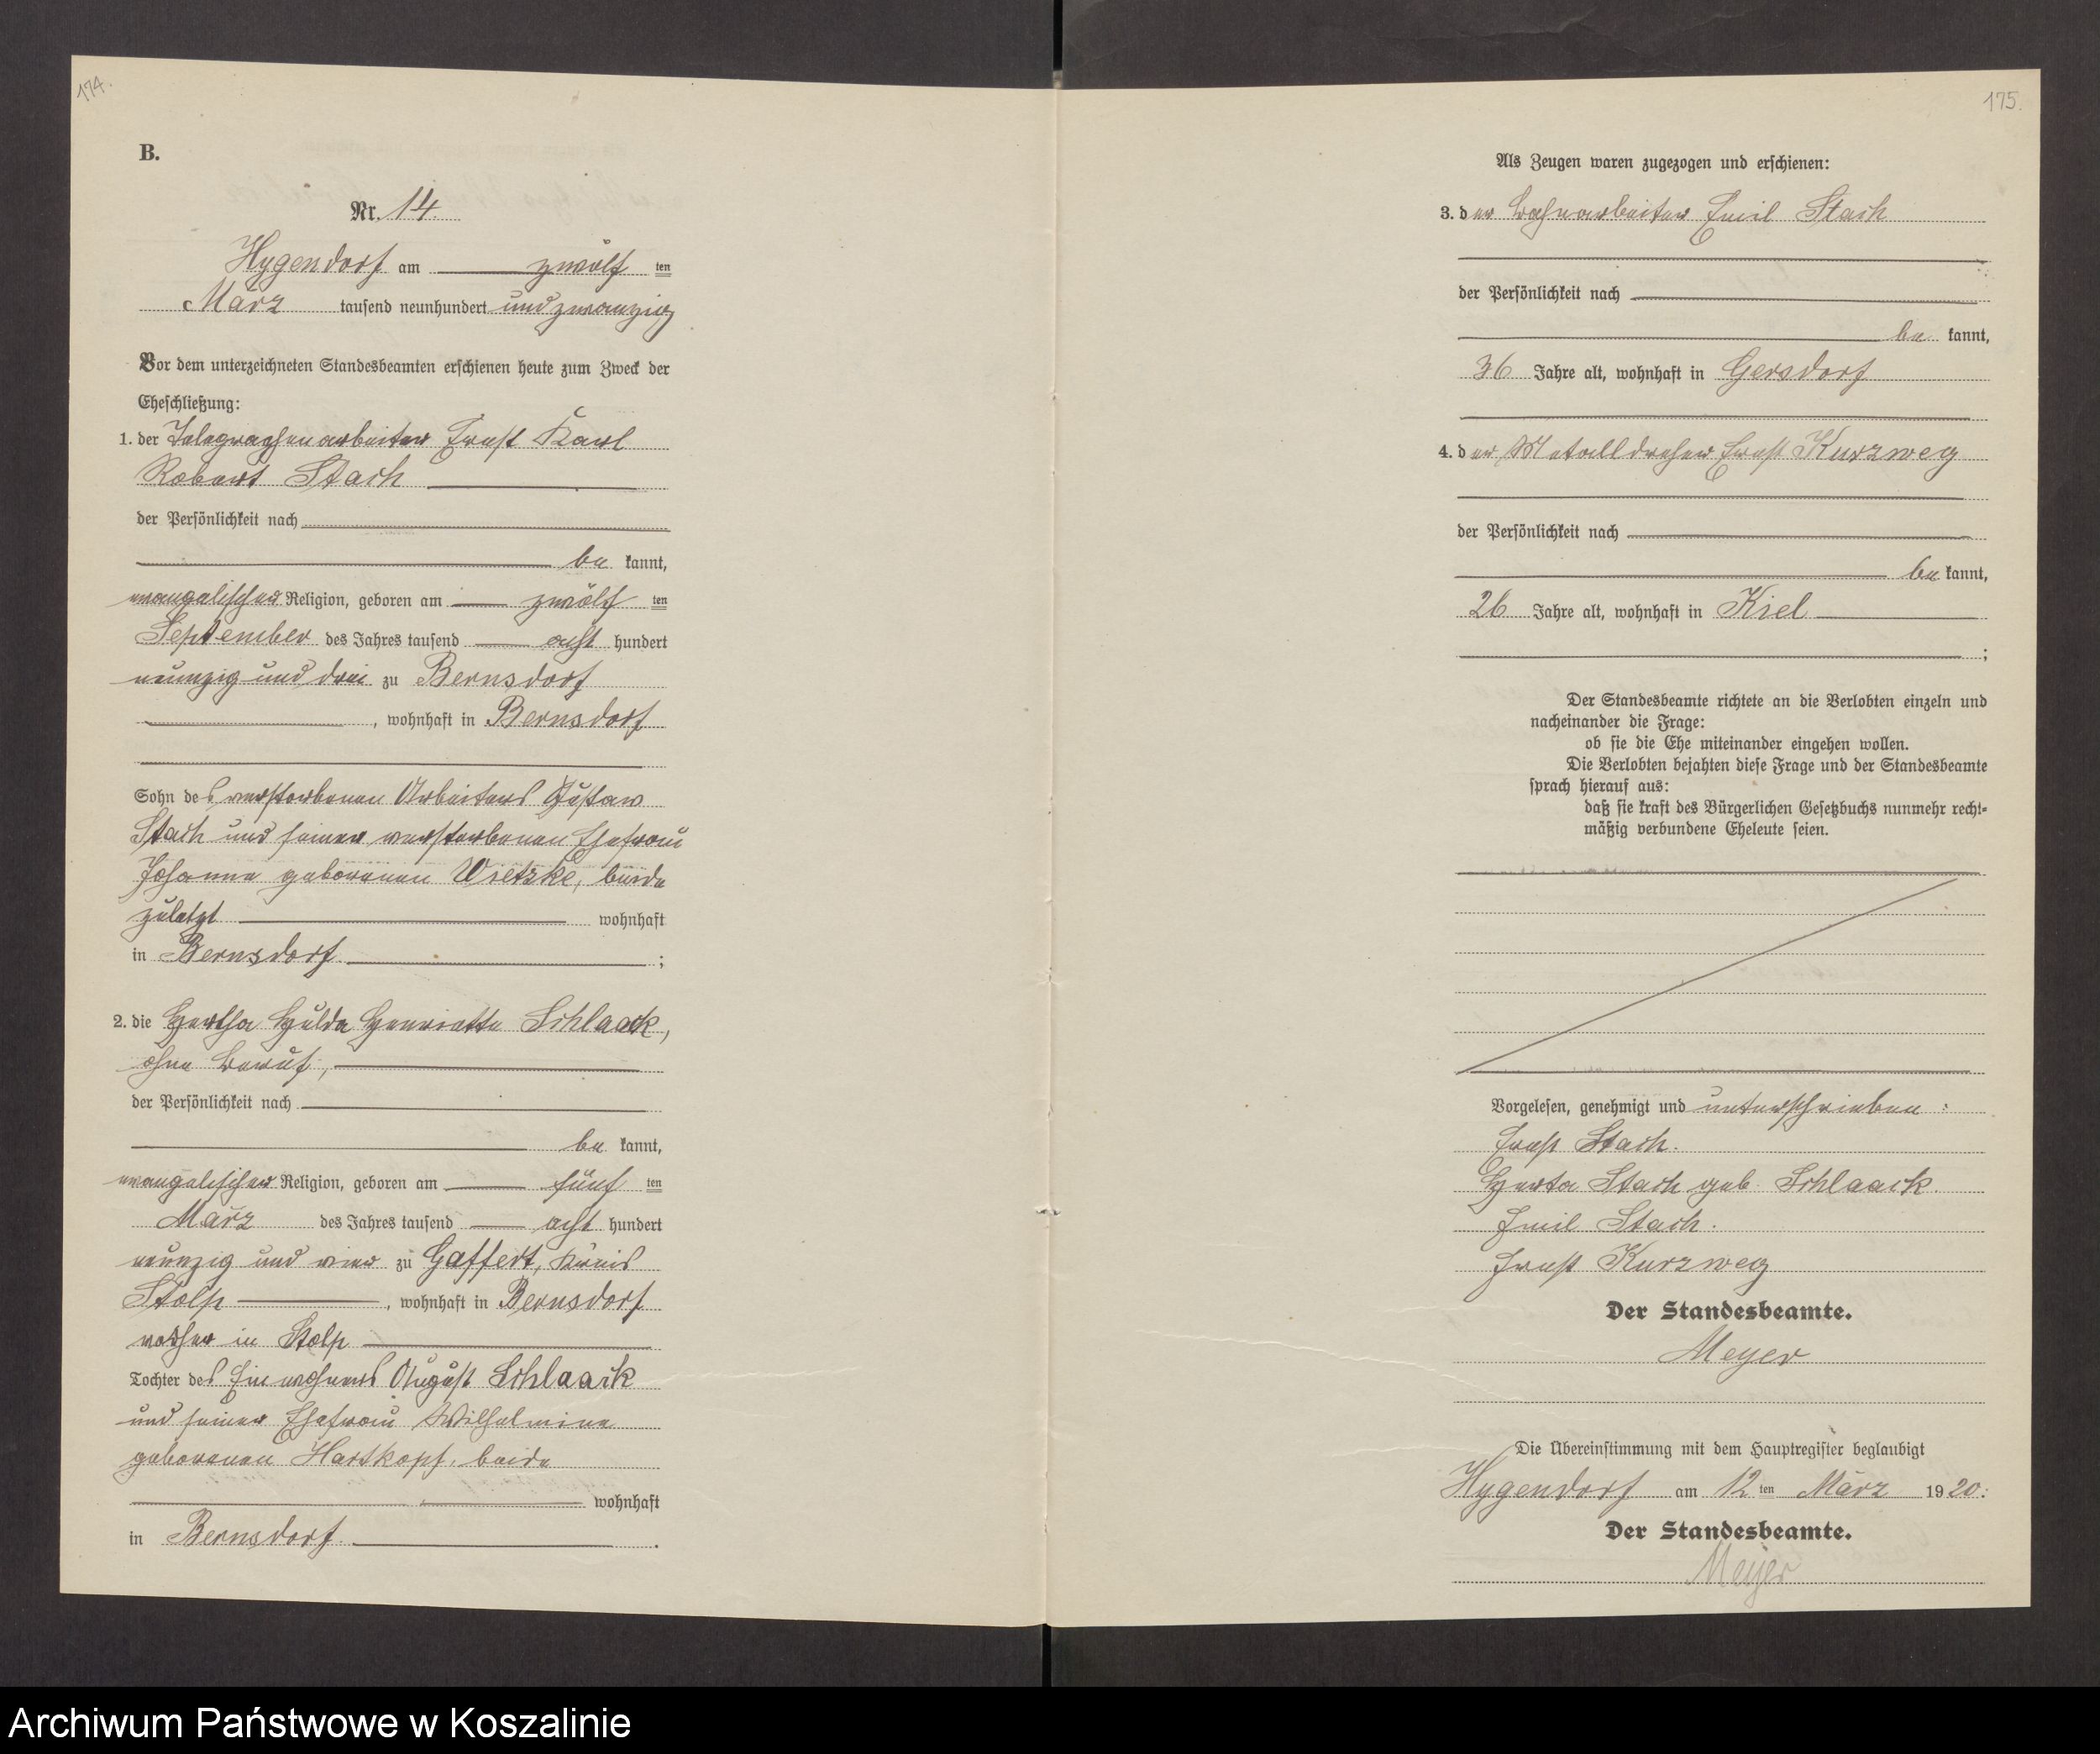 174.
B.
Nr. 14.
Hygendorf am zwölf ten
März tausend neunhundert und zwanzig
Vor dem unterzeichneten Standesbeamten erschienen heute zum Zweck der
Eheschließung:
1. der Telegraphenarbeiter Ernst Karl
Robert Stach
der Persönlichkeit nach
be kannt,
evangelischer Religion, geboren am zwölf ten
September des Jahres tausend acht hundert
neunzig und drei zu Bernsdorf
, wohnhaft in Bernsdorf
Sohn des verstorbenen Arbeiters Gustav
Stach und seiner verstorbenen Ehefrau
Johanna geborenen Wietzke, beide
zuletzt wohnhaft
in Bernsdorf ;
2. die Hertha Hulda Henriette Schlaack,
ohne Beruf,
der Persönlichkeit nach
be kannt,
evangelischer Religion, geboren am fünf ten
März des Jahres tausend acht hundert
neunzig und vier zu Gaffert, Kreis
Stolp , wohnhaft in Bernsdorf
vorher in Stolp
Tochter des Einwohners August Schlaack
und seiner Ehefrau Wilhelmine
geborenen Hartkopf, beide
wohnhaft
in Bernsdorf .
175.
Als Zeugen waren zugezogen und erschienen:
3. der Bahnarbeiter Emil Stach
der Persönlichkeit nach
be kannt,
36 Jahre alt, wohnhaft in Gersdorf
4. der Metalldreher Ernst Kurzweg
der Persönlichkeit nach
be kannt,
26 Jahre alt, wohnhaft in Kiel
;
Der Standesbeamte richtete an die Verlobten einzeln und
nacheinander die Frage:
ob sie die Ehe miteinander eingehen wollen.
Die Verlobten bejahten diese Frage und der Standesbeamte
sprach hierauf aus:
daß sie kraft des Bürgerlichen Gesetzbuchs nunmehr recht-
mäßig verbundene Eheleute seien.
Vorgelesen, genehmigt und unterschrieben:
Ernst Stach.
Herta Stach geb. Schlaack.
Emil Stach.
Ernst Kurzweg
Der Standesbeamte.
Meyer
Die Übereinstimmung mit dem Hauptregister beglaubigt
Hygendorf am 12 ten März 1920.
Der Standesbeamte.
Meyer
Archiwum Państwowe w Koszalinie